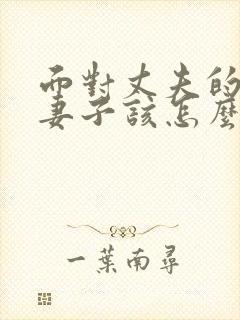 面對丈夫的
妻子該怎麼
一葉南尋